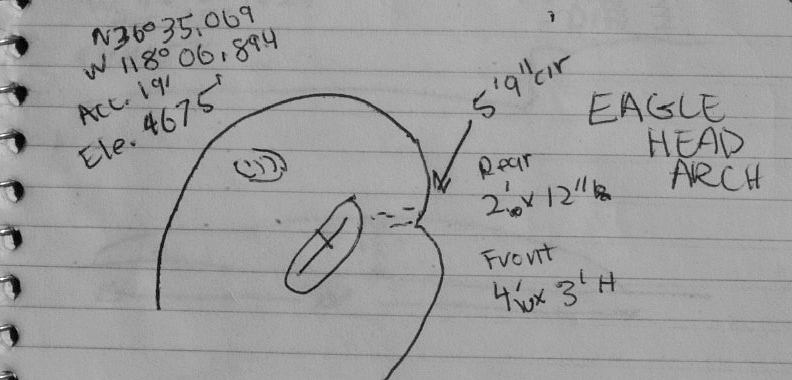 N36° 35.069
W 118° 06.894
Acc. 19'
Ele. 4675'
5'9" cir
EAGLE
HEAD
ARCH
Rear
2'w x 12" h
Front
4'w x 3' H